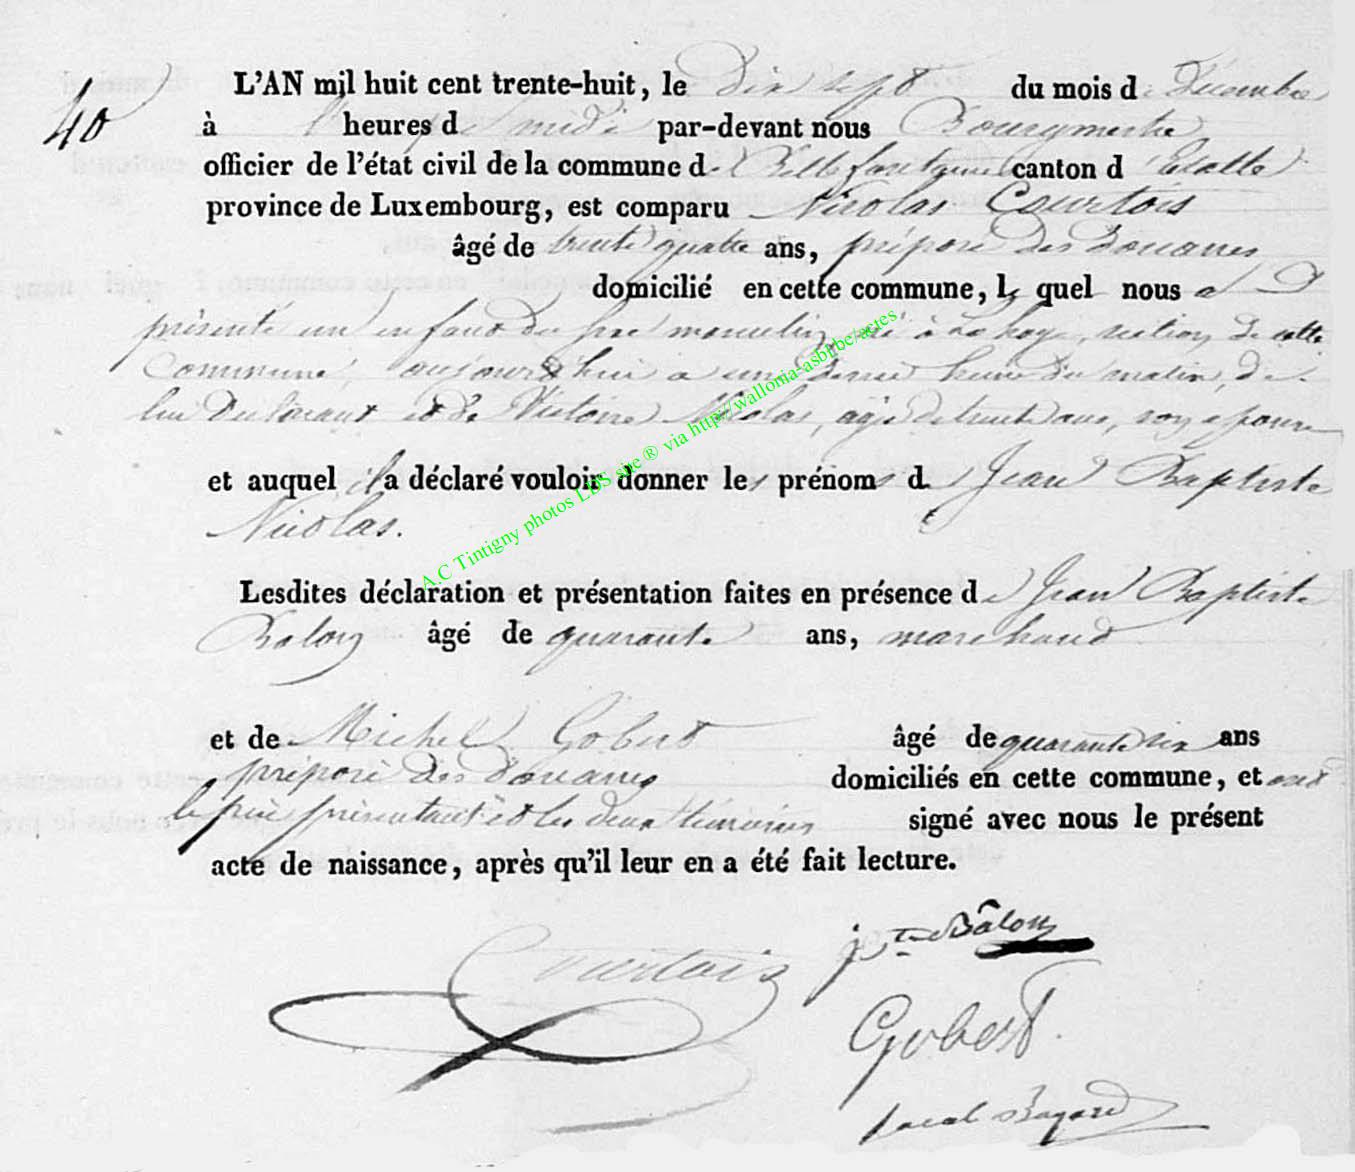 40
L'AN mil huit cent trente-huit, le Dix sept du mois de Décembre
à heures d midi par-devant nous Bourgmestre,
officier de l'état civil de la commune de Bellefontaine canton d'Etalle
province de Luxembourg, est comparu Nicolas Courtois
âgé de trente quatre ans, préposé des douanes
domicilié en cette commune, lequel nous a
présenté un enfant du sexe masculin, né à Lahage, section de cette
Commune, aujourd'hui a une heure du matin, de
lui Déclarant et de Victoire Nicolas, agée de trente ans, son épouse
et auquel il a déclaré vouloir donner les prénoms de Jean Baptiste
Nicolas.
Lesdites déclaration et présentation faites en présence de Jean Baptiste
Balon âgé de quarante ans, marchand
et de Michel Gobert âgé de quarante six ans
préposé des douanes domiciliés en cette commune, et ont
le père présentant et les deux témoins signé avec nous le présent
acte de naissance, après qu'il leur en a été fait lecture.
Courtois
j Bte Bâlon
Gobert
A.C Tintigny photos LDS site ® via http://wallonia-asbl.be/actes